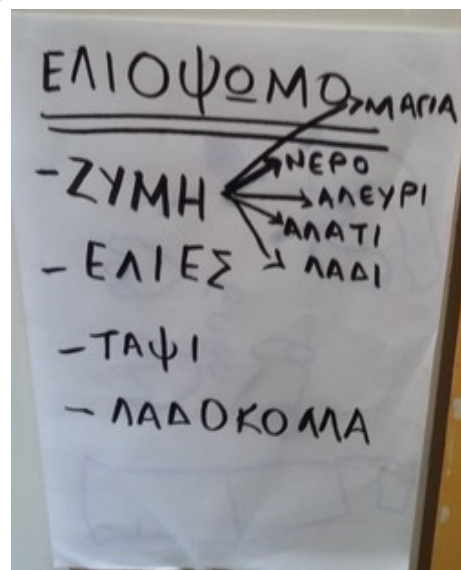 ΕΛΙΟΨΩΜΟ
ΜΑΓΙΑ
- ΖΥΜΗ
ΝΕΡΟ
ΑΛΕΥΡΙ
ΑΛΑΤΙ
ΛΑΔΙ
- ΕΛΙΕΣ
- ΤΑΨΙ
- ΛΑΔΟΚΟΛΛΑ